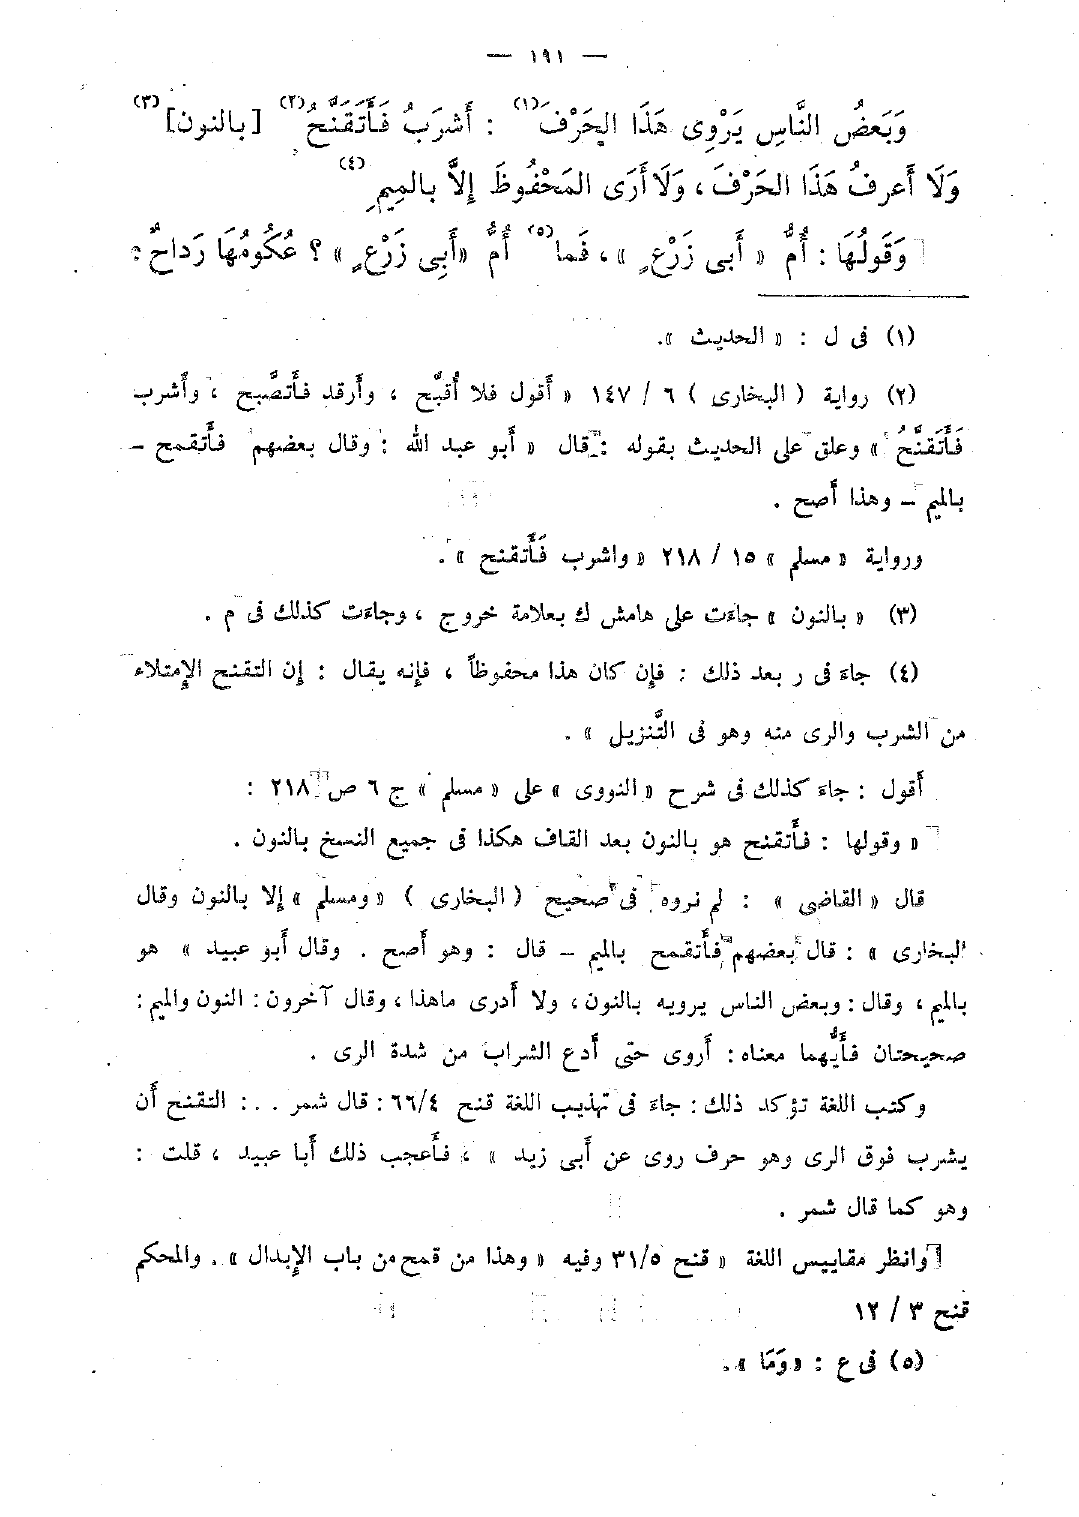 — ١٩١ —
وَبَعضُ النَّاسِ يَرْوِى هَذَا الحَرْفَ(١) : أَشرَبُ فَأَتَقَنَّحُ(٢) [بالنون](٣)
وَلَا أَعرفُ هَذَا الحَرْفَ ، وَلَا أَرَى المَحْفُوظَ إِلاَّ بالمِيمِ(٤)
وَقَولُهَا : أُمُّ « أَبى زَرْعٍ » ، فَما(٥) أُمُّ «أَبِى زَرْعٍ» ؟ عُكُومُهَا رَداحٌ :
(١) فى ل : « الحديث ».
(٢) رواية ( البخارى ) ٦ / ١٤٧ « أَقول فلا أُقبَّح ، وأَرقد فأَتصَّبح ، وأَشرب
فَأَتَقَنَّحُ » وعلق على الحديث بقوله : قال « أَبو عبد الله : وقال بعضهم فأَتقمح –
بالميم – وهذا أَصح .
ورواية « مسلم » ١٥ / ٢١٨ « واشرب فَأَتقنح » .
(٣) « بالنون » جاءَت على هامش ك بعلامة خروج ، وجاءَت كذلك فى م .
(٤) جاءَ فى ر بعد ذلك : فإن كان هذا محفوظاً ، فإنه يقال : إن التقنح الإمتلاء
من الشرب والرى منه وهو فى التَّنزيل » .
أَقول : جاءَ كذلك فى شرح « النووى » على « مسلم » ج ٦ ص ٢١٨ :
« وقولها : فأَتقنح هو بالنون بعد القاف هكذا فى جميع النسخ بالنون .
قال « القاضى » : لم نروه فى صحيح ( البخارى ) « ومسلم » إلا بالنون وقال
البخارى » : قال بعضهم فأَتقمح بالميم – قال : وهو أَصح . وقال أَبو عبيد » هو
بالميم ، وقال : وبعض الناس يرويه بالنون ، ولا أَدرى ماهذا ، وقال آخرون : النون والميم :
صحيحتان فأَيُّهما معناه : أَروى حتى أَدع الشراب من شدة الرى .
وكتب اللغة تؤكد ذلك : جاءَ فى تهذيب اللغة قنح ٦٦/٤ : قال شمر . . : التقنح أَن
يشرب فوق الرى وهو حرف روى عن أَبى زيد » ، فأَعجب ذلك أَبا عبيد ، قلت :
وهو كما قال شمر .
وانظر مقاييس اللغة « قنح ٣١/٥ وفيه « وهذا من قمح من باب الإبدال » . والمحكم
قنح ٣ / ١٢
(٥) فى ع : « وَمَا » .